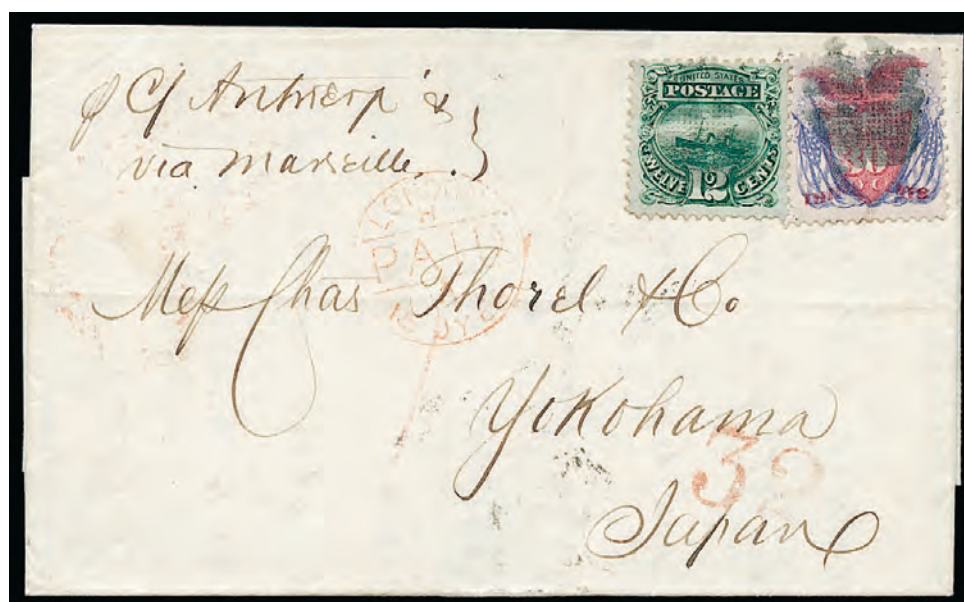 p C/ Antwerp &
via Marseille.
UNITED STATES
POSTAGE
TWELVE 12 CENTS
30
PAID
Mess Chas Thorel & Co.
Yokohama
32
Japan